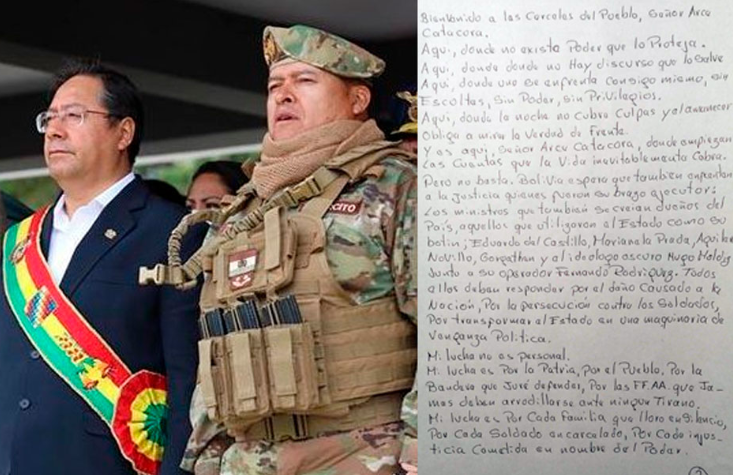 Bienbenido a las Carceles del Pueblo, Señor Arce
Catacora.
Aqui, donde no exista Poder que lo Proteja.
Aqui, donde donde no Hay discurso que lo Salve
Aqui, donde uno se enfrenta Consigo mismo, sin
Escoltas, Sin Poder, sin Privilegios.
Aqui, donde la noche no Cubre Culpas y el amanecer
Obliga a mirar la Verdad de Frente.
Y es aqui, Señor Arce Catacora, donde empiezan
Las Cuentas que la Vida inevitablemente Cobra.
Pero no basta. Bolivia espera que tambien enfrenten
a la Justicia quienes fueron su brazo ejecutor:
Los ministros que tambien se creian dueños del
País, aquellos que utilizaron al Estado como su
botin; Eduardo del Castillo, Marianela Prada, Aquilar
Novillo, Gonzathan y al ideologo oscuro Hugo Moldiz
Junto a su operador Fernando Rodriguez. Todos
ellos deben responder por el daño Causado a la
Nación, Por la persecución contra los Soldados,
Por transpormar al Estado en una maquinaria de
Venganza Politica.
Mi lucha no es personal.
Mi lucha es Por la Patria, Por el Pueblo, Por la
Bandera que Juré defender, Por las FF.AA. que Ja-
mas deben arrodillarse ante ningun Tirano.
Mi lucha es Por Cada Familia que lloro en Silencio,
Por Cada Soldado encarcelado, Por Cada injus-
ticia Cometida en nombre del Poder.
ÉRCITO